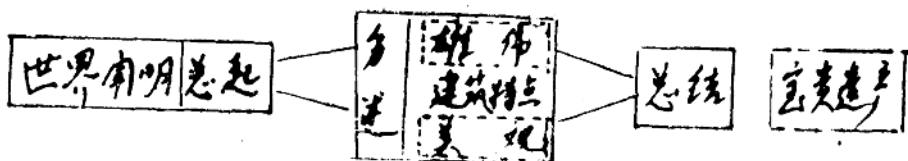 世界闻明 总起
分述
雄伟
建筑特点
美观
总结
宝贵遗产